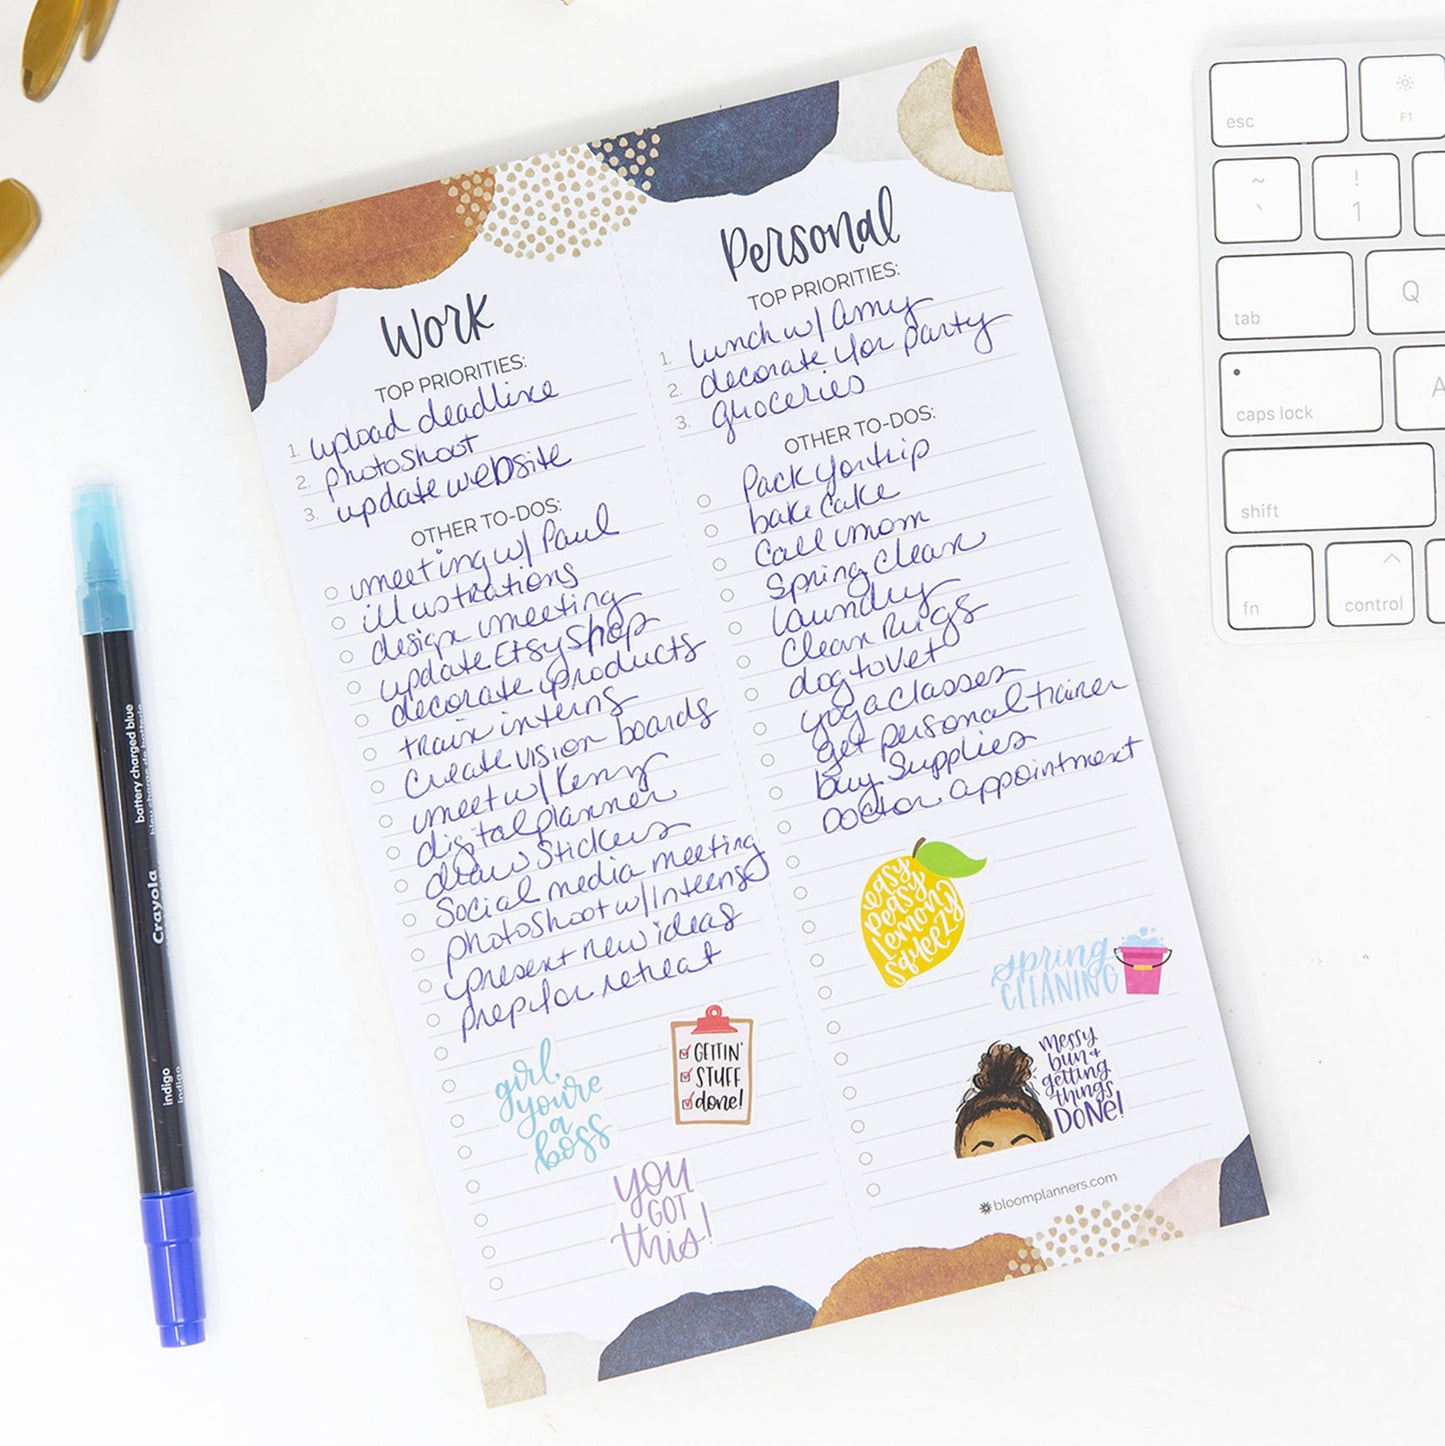 Work
TOP PRIORITIES:
1. upload deadline
2. photoshoot
3. update website
OTHER TO-DOS:
meeting w/ Paul
illustrations
design meeting
update Etsy Shop
decorate products
train interns
create vision boards
meet w/ Kenny
digital planner
draw Stickers
Social media meeting
photoshoot w/ Interns
present new ideas
prep for retreat
girl,
you're
a
boss
GETTIN'
STUFF
done!
you
GOT
this!
Personal
TOP PRIORITIES:
1. lunch w/ Amy
2. decorate for party
3. groceries
OTHER TO-DOS:
Pack for trip
bake cake
Call mom
Spring Clean
laundry
Clean Rugs
dog to Vet
yoga classes
get personal trainer
buy Supplies
Doctor appointment
easy
peasy
lemony
squeezy
spring
CLEANING
messy
bun +
getting
things
DONE!
bloomplanners.com
battery charged blue
Crayola
indigo
indigo
esc
F1
~
`
!
1
tab
Q
caps lock
A
shift
fn
control